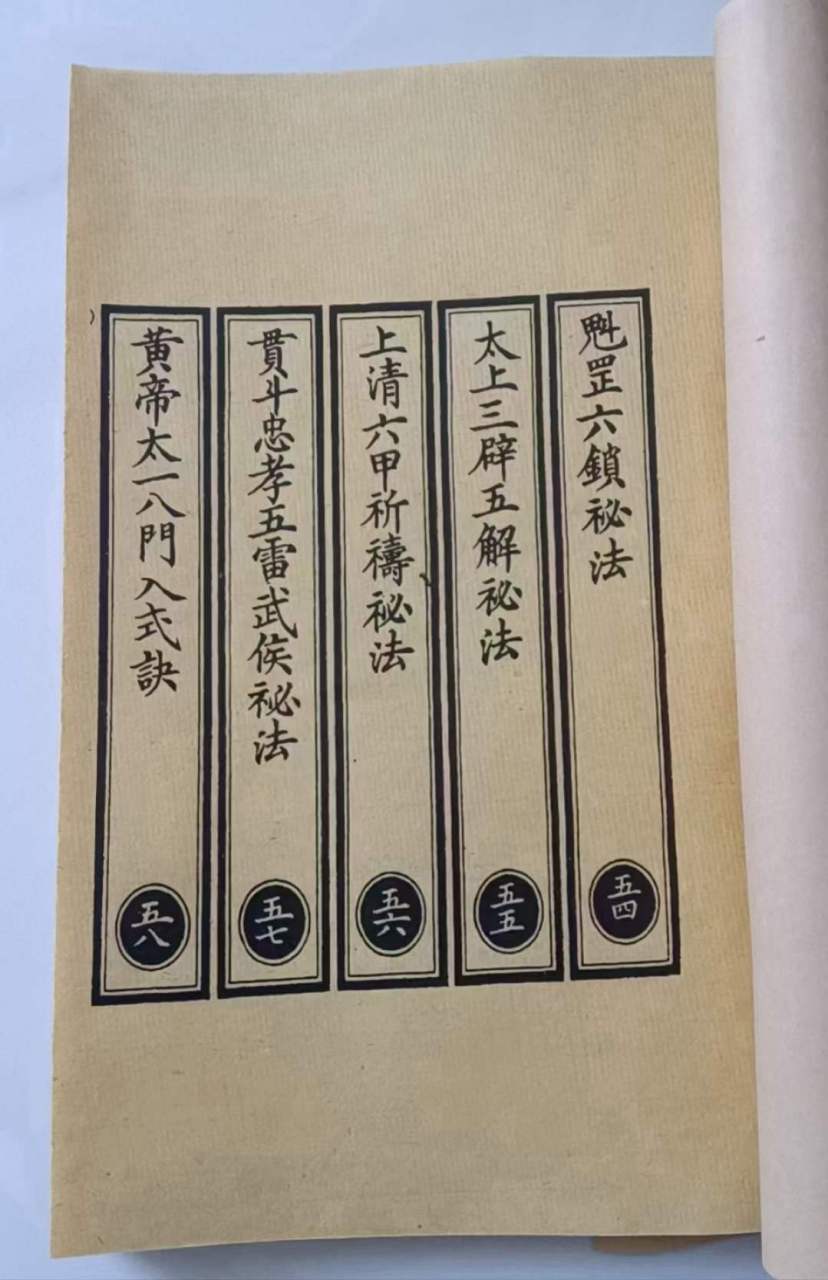 魁罡六鎖祕法
五四
太上三辟五解祕法
五五
上清六甲祈禱祕法
五六
貫斗忠孝五雷武侯祕法
五七
黃帝太一八門入式訣
五八